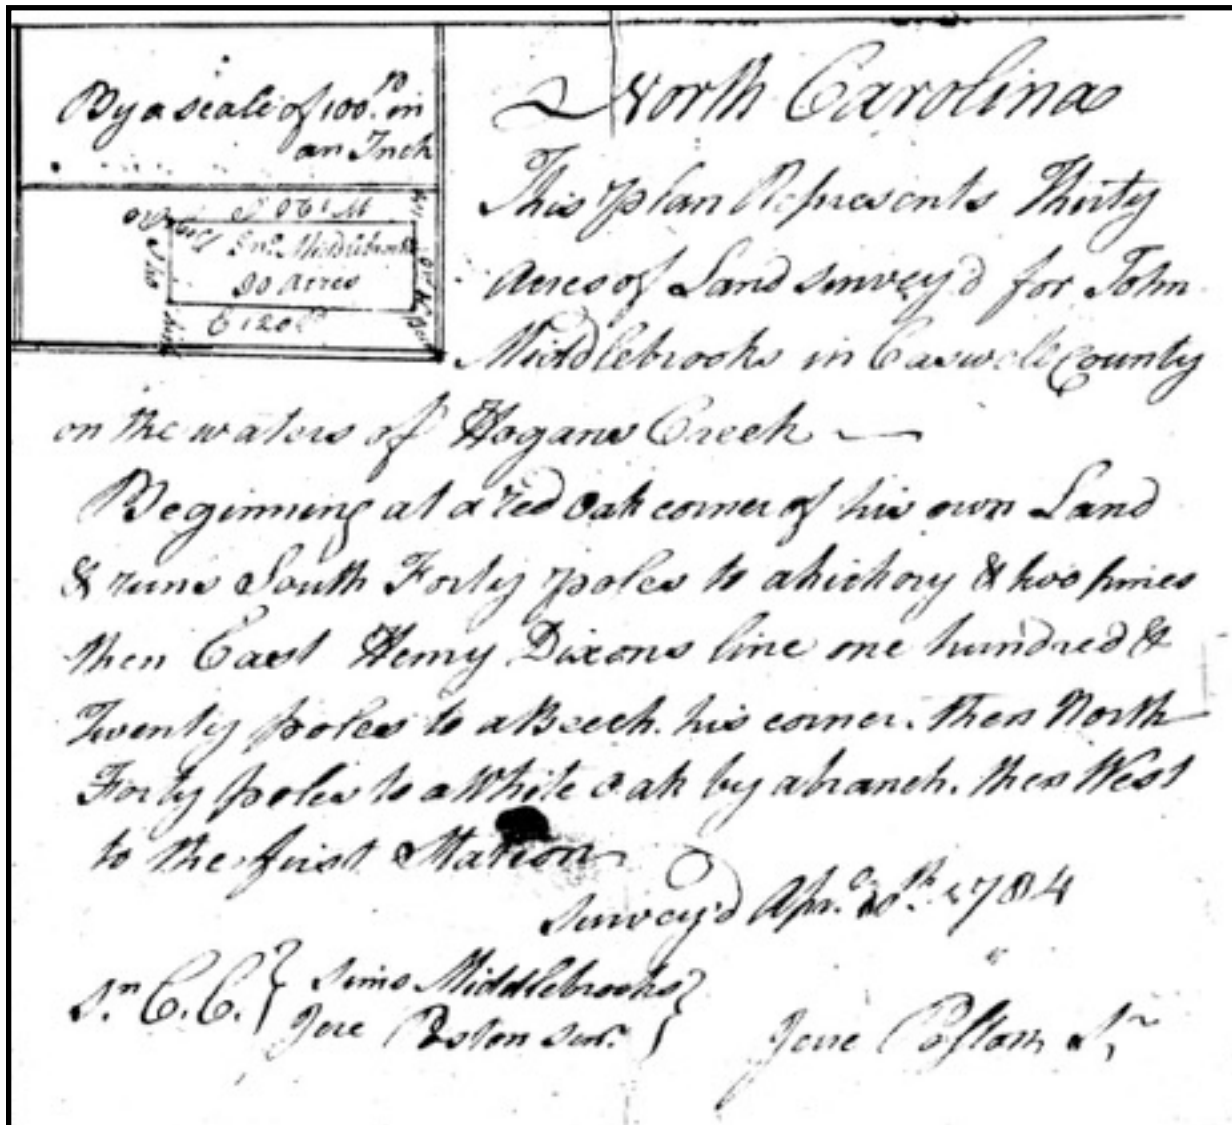 By a scale of 100 po. in
an Inch
W 120 P
Jno. Middlebrooks
30 Acres
E 120 P
North Carolina
This plan Represents Thirty
Acres of Land survey'd for John
Middlebrooks in Caswell County
on the waters of Hogans Creek —
Beginning at a red oak corner of his own Land
& runs South Forty poles to a hickory & two pines
then East Henry Dixons line one hundred &
Twenty poles to a Beech his corner. then North
Forty poles to a White oak by a branch. then West
to the first Station
Survey'd Apr. 1784
Sn. C. C. } Sims Middlebrooks }
Jere Poston senr.
Jere Poston Sr